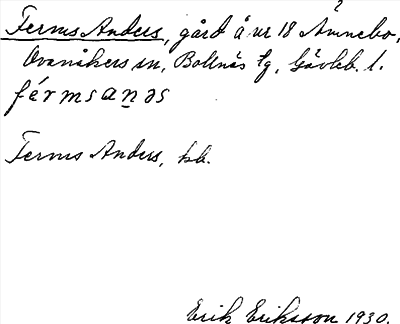 Ferms Anders, gård å nr 18 Ämnebo,
Ovanåkers sn, Bollnäs tg, Gävleb. l.
férmsanəs
Ferms Anders, hb.
Erik Eriksson 1930.